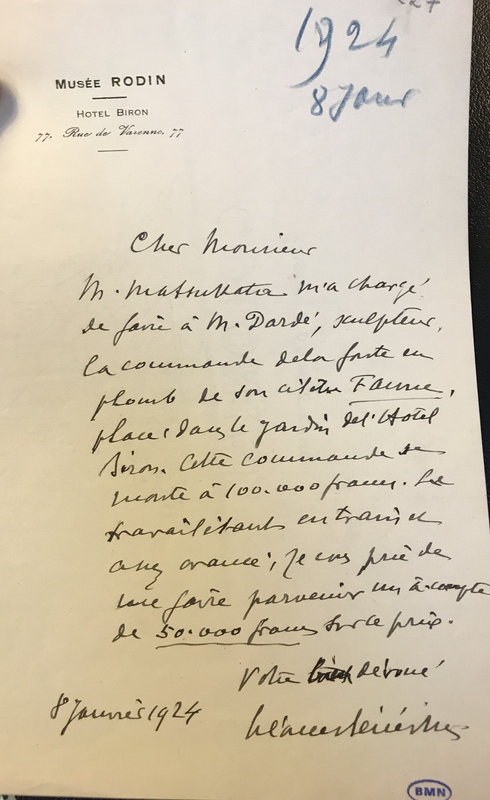 1924
8 Janv
MUSÉE RODIN
HOTEL BIRON
77, Rue de Varenne, 77
Cher Monsieur
M. Matsukata m'a chargé
de faire à M. Dardé, sculpteur,
la commande de la fonte en
plomb de son célèbre Faune,
placé dans le jardin de l'Hotel
Biron. Cette commande se
monte à 100.000 francs. Le
travail étant en train et
assez avancé, je vous prie de
me faire parvenir un à-compte
de 50.000 francs sur le prix.
Votre dévoué
8 Janvier 1924
Léonce Bénédite
BMN